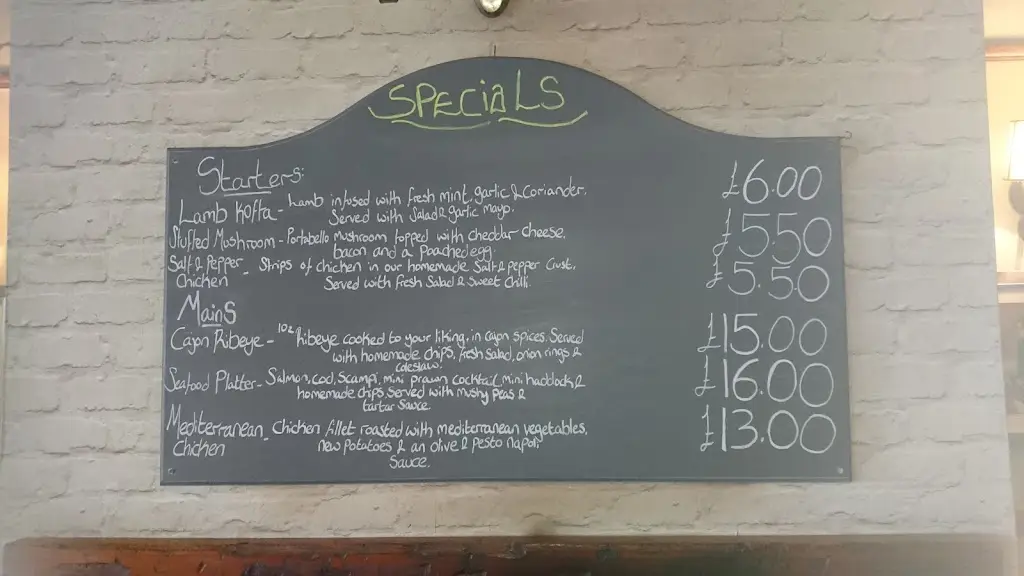 SPECiaLS
Starters:
Lamb Kofta - Lamb infused with fresh mint, garlic & Coriander. £6.00
Served with Salad & garlic mayo.
Stuffed Mushroom - Portobello mushroom topped with cheddar cheese, £5.50
bacon and a Poached egg
Salt & Pepper Chicken - Strips of chicken in our homemade Salt & pepper Crust. £5.50
Served with Fresh Salad & Sweet Chilli.
Mains
Cajon Ribeye - 10oz Ribeye cooked to your liking, in cajon spices. Served £15.00
with homemade chips, fresh salad, onion rings &
coleslaw.
Seafood Platter - Salmon, cod, Scampi, mini prawn cocktail, mini haddock & £16.00
homemade chips. Served with mushy peas &
tartar Sauce.
Mediterranean Chicken - Chicken fillet roasted with mediterranean vegetables, £13.00
New potatoes & an olive & pesto napoli
Sauce.